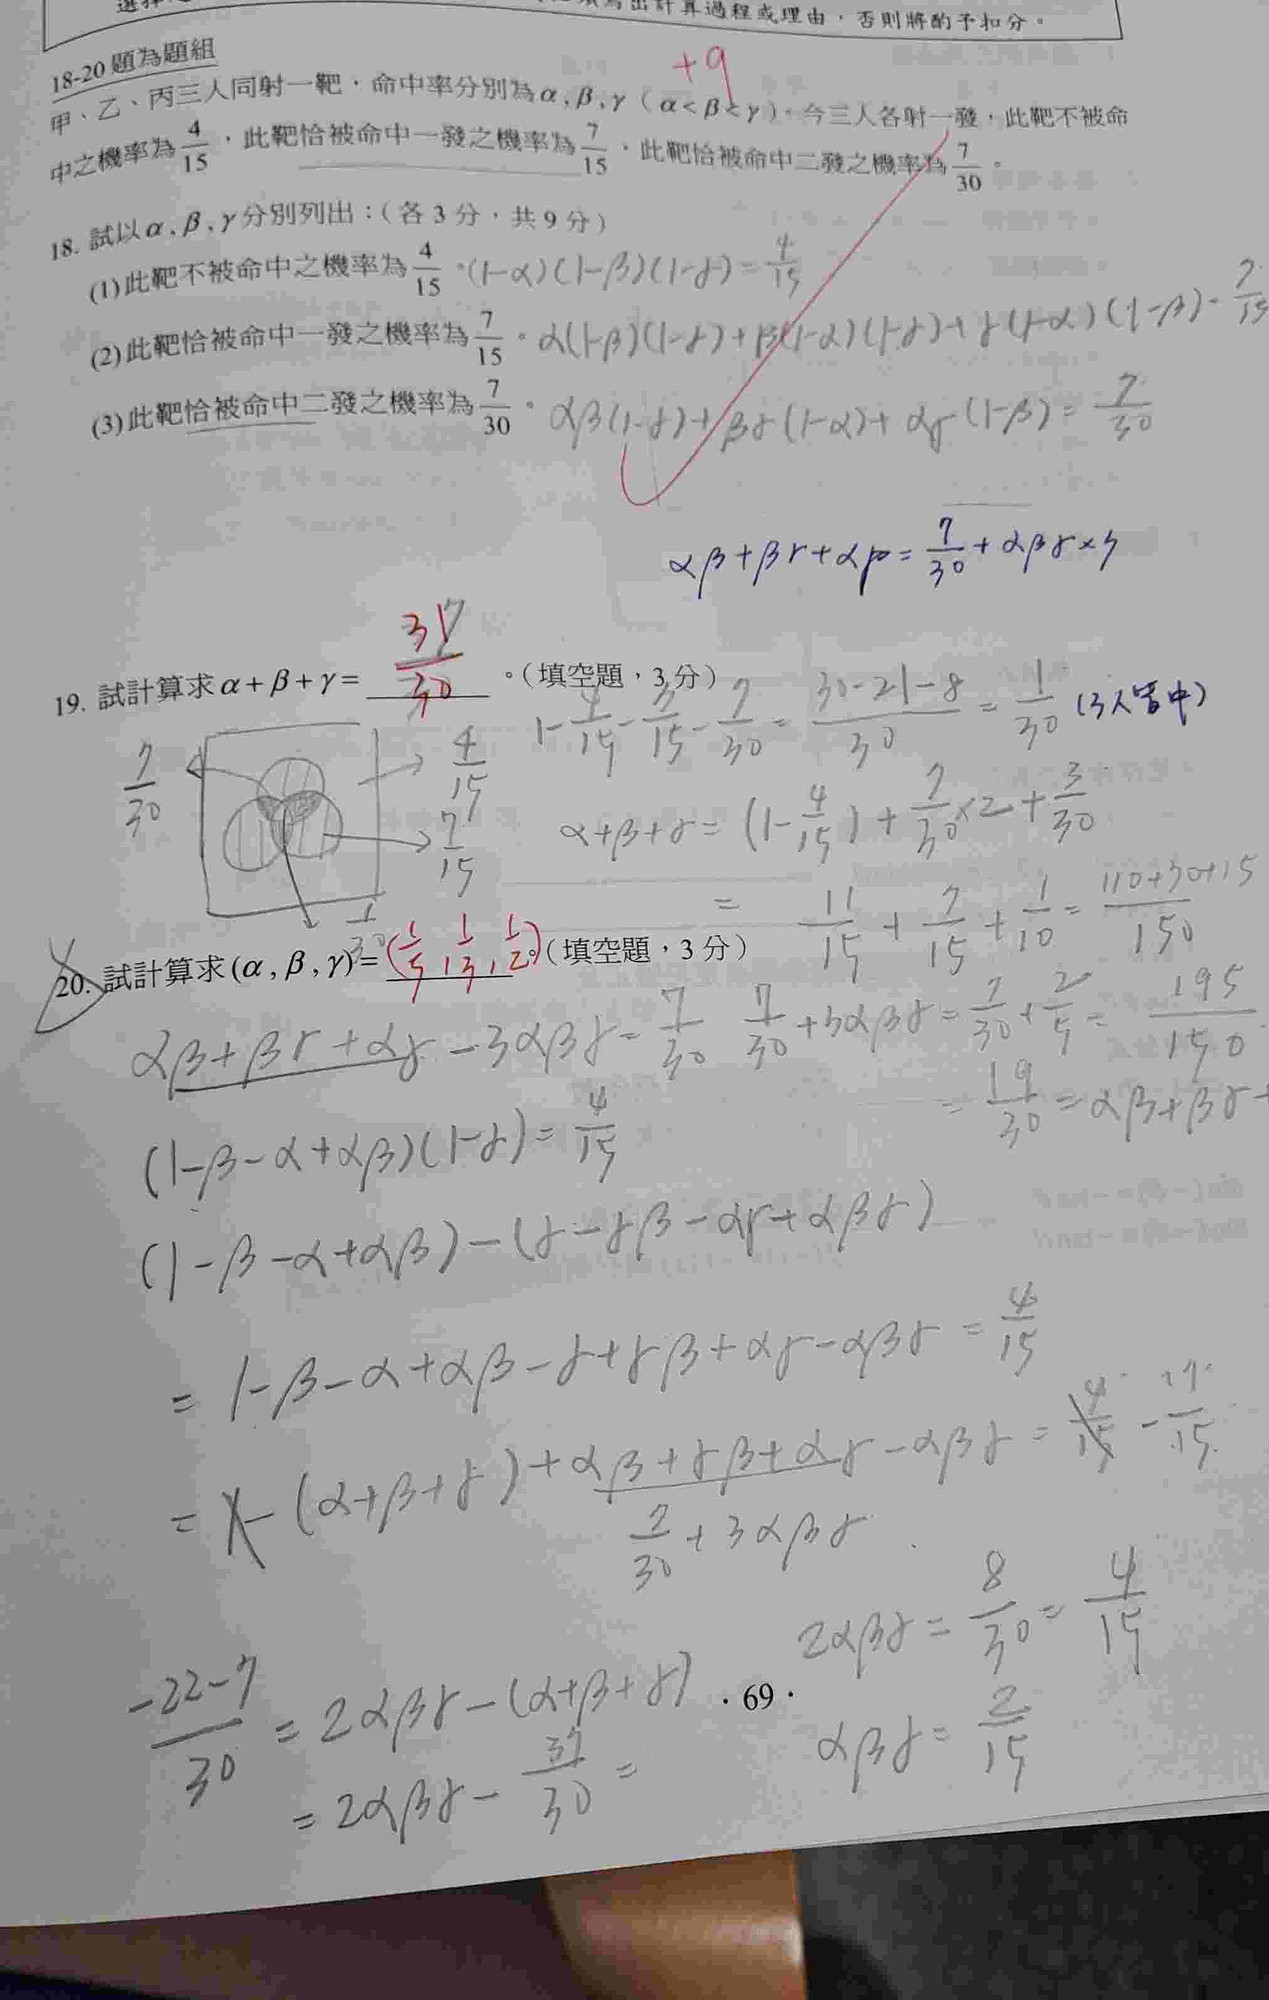 出計算過程或理由，否則將酌予扣分。
18-20題為題組
+9
甲、乙、丙三人同射一靶，命中率分別為α,β,γ（α<β<γ）。今三人各射一發，此靶不被命
中之機率為4/15，此靶恰被命中一發之機率為7/15，此靶恰被命中二發之機率為7/30。
18. 試以α,β,γ分別列出：（各3分，共9分）
(1)此靶不被命中之機率為4/15。(1-α)(1-β)(1-γ)=4/15
(2)此靶恰被命中一發之機率為7/15。α(1-β)(1-γ)+β(1-α)(1-γ)+γ(1-α)(1-β)=7/15
(3)此靶恰被命中二發之機率為7/30。αβ(1-γ)+βγ(1-α)+αγ(1-β)=7/30
αβ+βγ+αγ=7/30+αβγ×3
19. 試計算求α+β+γ=31/30。（填空題，3分）
1-4/15-7/15-7/30=30-21-8/30=1/30 (3人皆中)
7/30 4/15
α+β+γ=(1-4/15)+7/30×2+3/30
7/15
=11/15+7/15+1/10=110+70+15/150
1/30
20. 試計算求(α,β,γ)=(1/5,1/3,1/2)。（填空題，3分）
αβ+βγ+αγ-3αβγ=7/30 7/30+3αβγ=7/30+2/5=195/150
(1-β-α+αβ)(1-γ)=4/15 =19/30=αβ+βγ+
(1-β-α+αβ)-(γ-γβ-αγ+αβγ)
=1-β-α+αβ-γ+γβ+αγ-αβγ=4/15
=1-(α+β+γ)+αβ+γβ+αγ-αβγ=4/15-11/15
7/30+3αβγ
2αβγ=8/30=4/15
-22-7/30=2αβγ-(α+β+γ)
αβγ=2/15
=2αβγ-37/30=
·69·